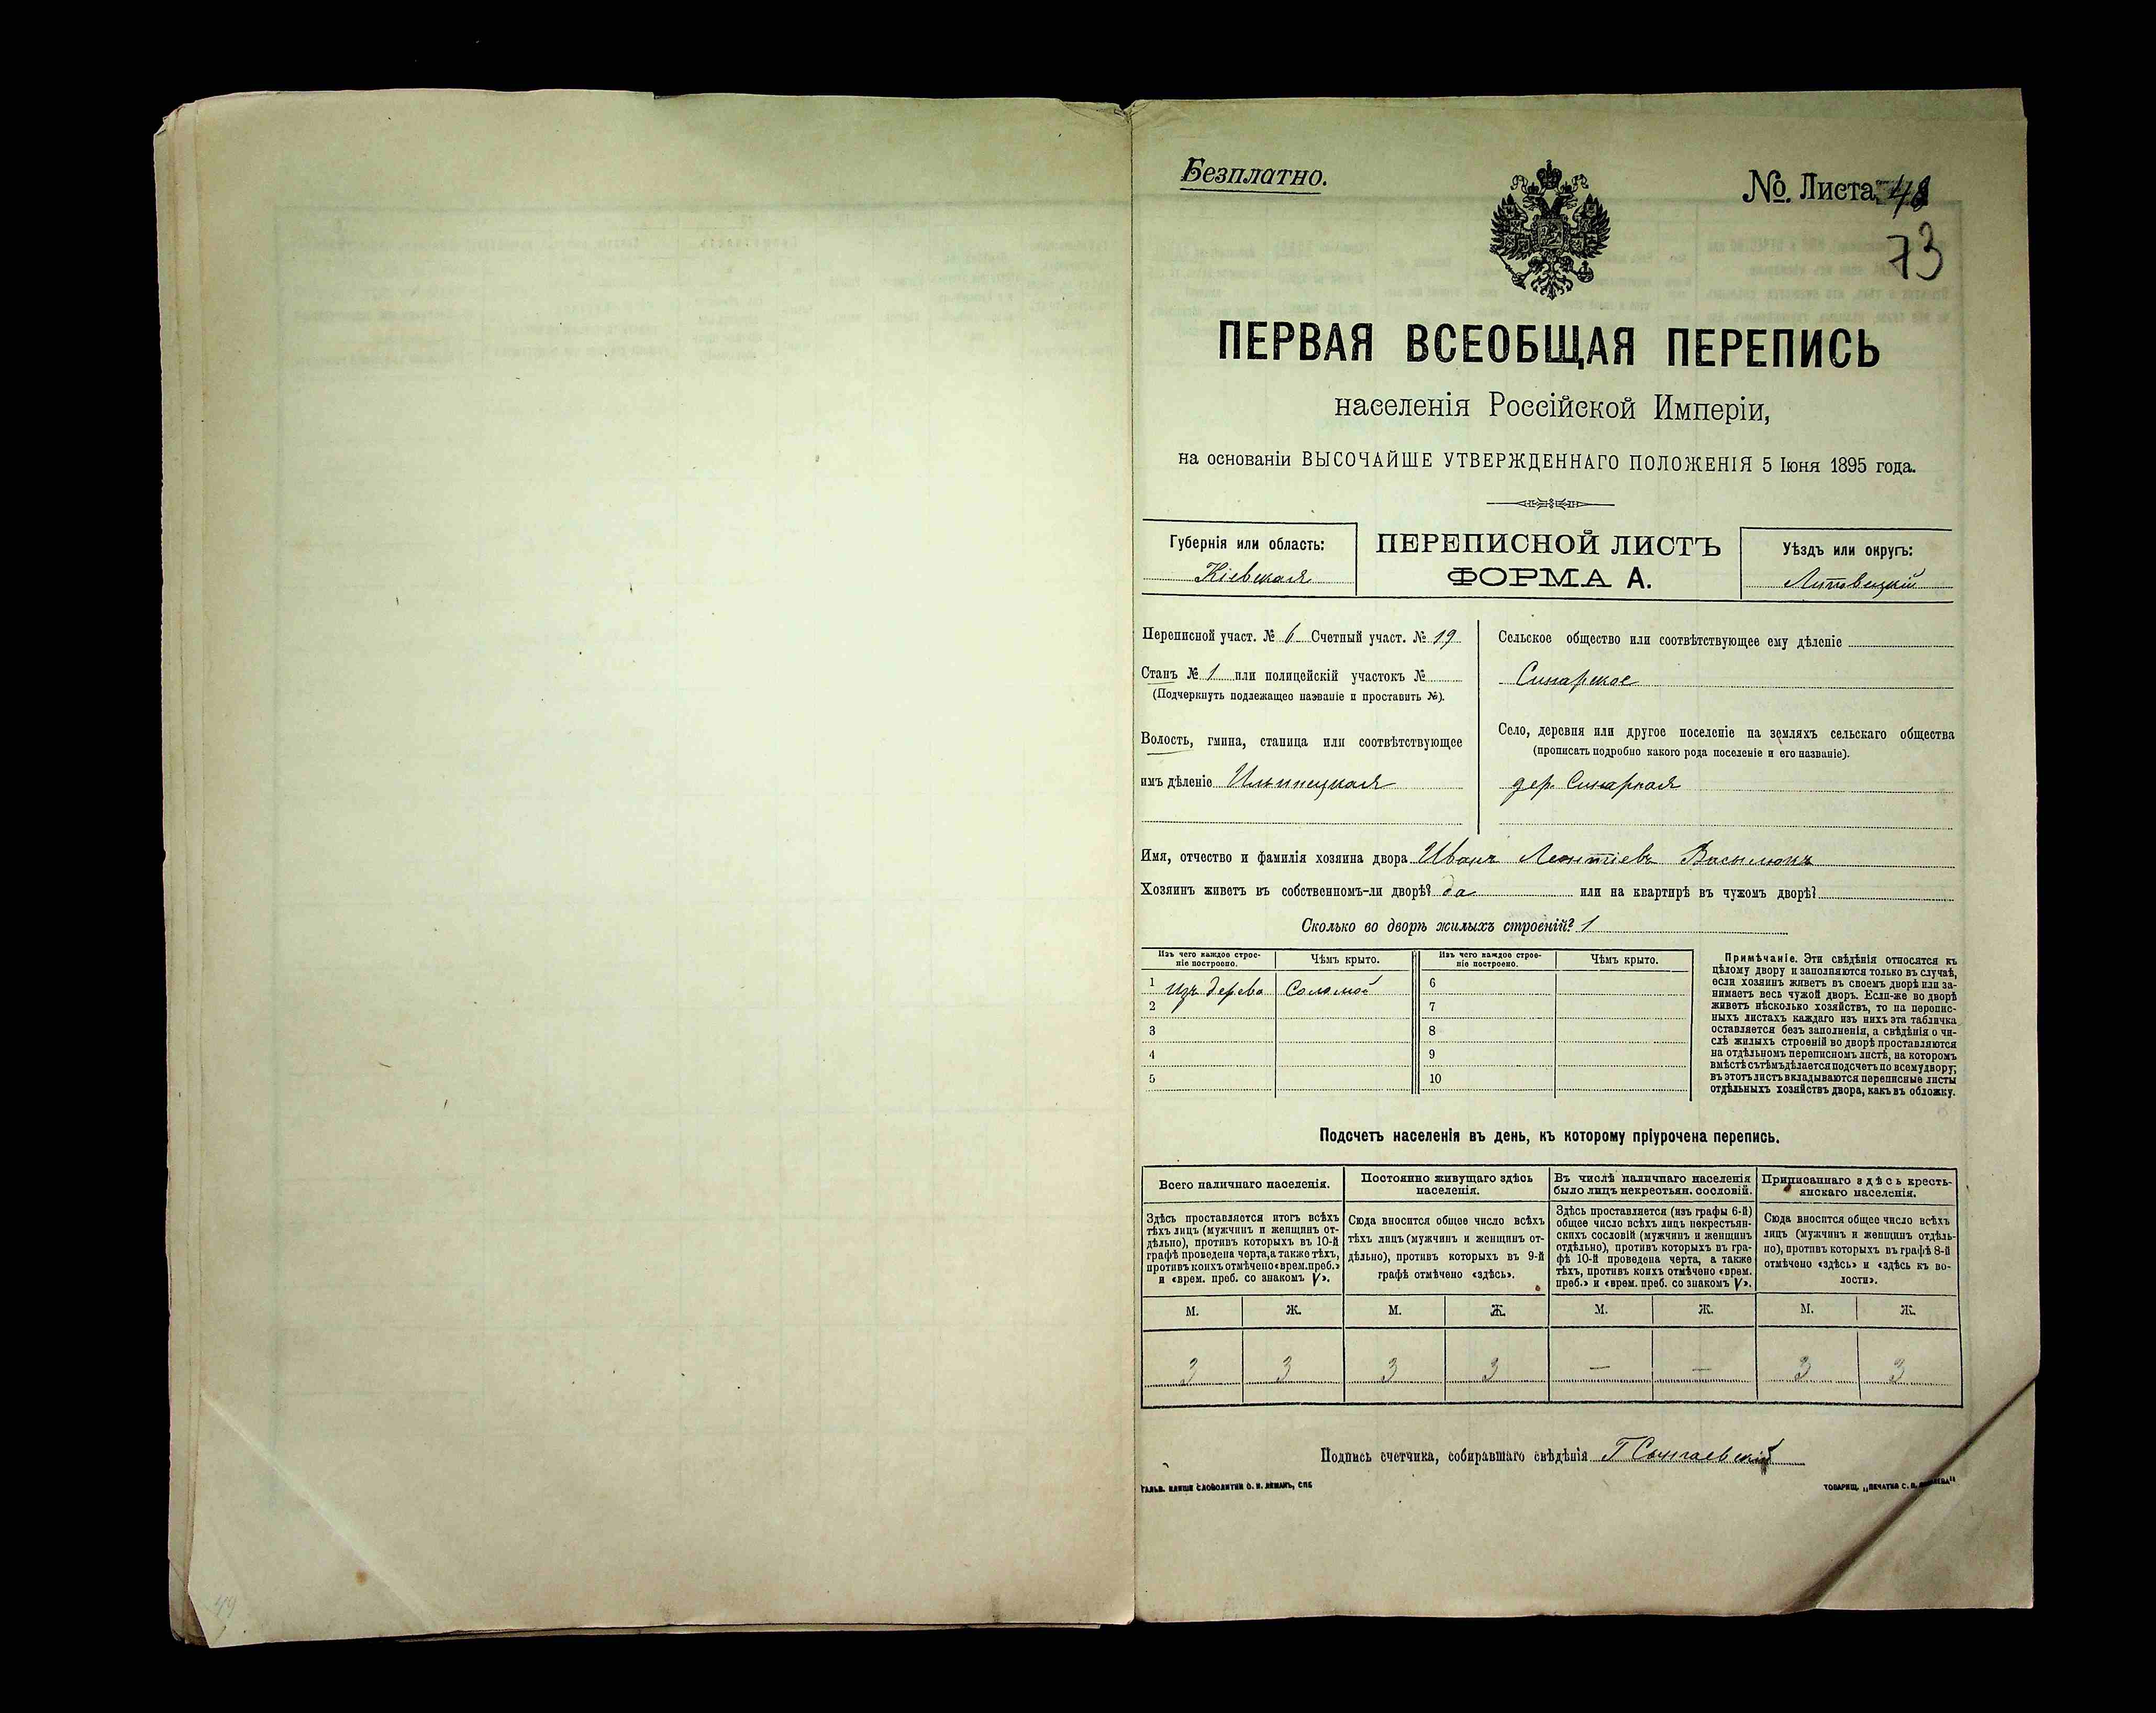 Безплатно.
№ Листа 48
73
ПЕРВАЯ ВСЕОБЩАЯ ПЕРЕПИСЬ
населенія Россійской Имперіи,
на основаніи ВЫСОЧАЙШЕ УТВЕРЖДЕННАГО ПОЛОЖЕНІЯ 5 Іюня 1895 года.
Губернія или область:
Кіевская
ПЕРЕПИСНОЙ ЛИСТЪ
ФОРМА А.
Уѣздъ или округъ:
Липовецкій
Переписной участ. № 6 Счетный участ. № 19
Станъ № 1 или полицейскій участокъ №
(Подчеркнуть подлежащее названіе и проставить №).
Волость, гмина, станица или соотвѣтствующее
имъ дѣленіе Ильинецкая
Сельское общество или соотвѣтствующее ему дѣленіе
Синарское
Село, деревня или другое поселеніе на земляхъ сельскаго общества
(прописать подробно какого рода поселеніе и его названіе).
дер. Синарная
Имя, отчество и фамилія хозяина двора Иванъ Леонтіевъ Василюкъ
Хозяинъ живетъ въ собственномъ-ли дворѣ? да или на квартирѣ въ чужомъ дворѣ?
Сколько во дворѣ жилыхъ строеній? 1
Изъ чего каждое строе-
ніе построено.
Чѣмъ крыто.
Изъ чего каждое строе-
ніе построено.
Чѣмъ крыто.
1 Изъ дерева Соломой 6
2 7
3 8
4 9
5 10
Примѣчаніе. Эти свѣдѣнія относятся къ
цѣлому двору и заполняются только въ случаѣ,
если хозяинъ живетъ въ своемъ дворѣ или за-
нимаетъ весь чужой дворъ. Если-же во дворѣ
живетъ нѣсколько хозяйствъ, то на перепис-
ныхъ листахъ каждаго изъ нихъ эта табличка
оставляется безъ заполненія, а свѣдѣнія о чи-
слѣ жилыхъ строеній во дворѣ проставляются
на отдѣльномъ переписномъ листѣ, на которомъ
вмѣстѣ съ тѣмъ дѣлается подсчетъ по всему двору;
въ этотъ листъ вкладываются переписные листы
отдѣльныхъ хозяйствъ двора, какъ въ обложку.
Подсчетъ населенія въ день, къ которому пріурочена перепись.
Всего наличнаго населенія.
Постоянно живущаго здѣсь
населенія.
Въ числѣ наличнаго населенія
было лицъ некрестьян. сословій.
Приписаннаго здѣсь кресть-
янскаго населенія.
Здѣсь проставляется итогъ всѣхъ
тѣхъ лицъ (мужчинъ и женщинъ от-
дѣльно), противъ которыхъ въ 10-й
графѣ проведена черта, а также тѣхъ,
противъ коихъ отмѣчено «врем. преб.»
и «врем. преб. со знакомъ V».
Сюда вносится общее число всѣхъ
тѣхъ лицъ (мужчинъ и женщинъ от-
дѣльно), противъ которыхъ въ 9-й
графѣ отмѣчено «здѣсь».
Здѣсь проставляется (изъ графы 6-й)
общее число всѣхъ лицъ некрестьян-
скихъ сословій (мужчинъ и женщинъ
отдѣльно), противъ которыхъ въ гра-
фѣ 10-й проведена черта, а также
тѣхъ, противъ коихъ отмѣчено «врем.
преб.» и «врем. преб. со знакомъ V».
Сюда вносится общее число всѣхъ
лицъ (мужчинъ и женщинъ отдѣль-
но), противъ которыхъ въ графѣ 8-й
отмѣчено «здѣсь» и «здѣсь въ во-
лости».
М. Ж. М. Ж. М. Ж. М. Ж.
3 3 3 3 — — 3 3
Подпись счетчика, собиравшаго свѣдѣнія Г
ГАЛЬВ. КЛИШЕ СЛОВОЛИТНИ О. И. ЛЕМАНЪ, СПБ
ТОВАРИЩ. „ПЕЧАТНЯ С. П. ЯКОВЛЕВА"
49